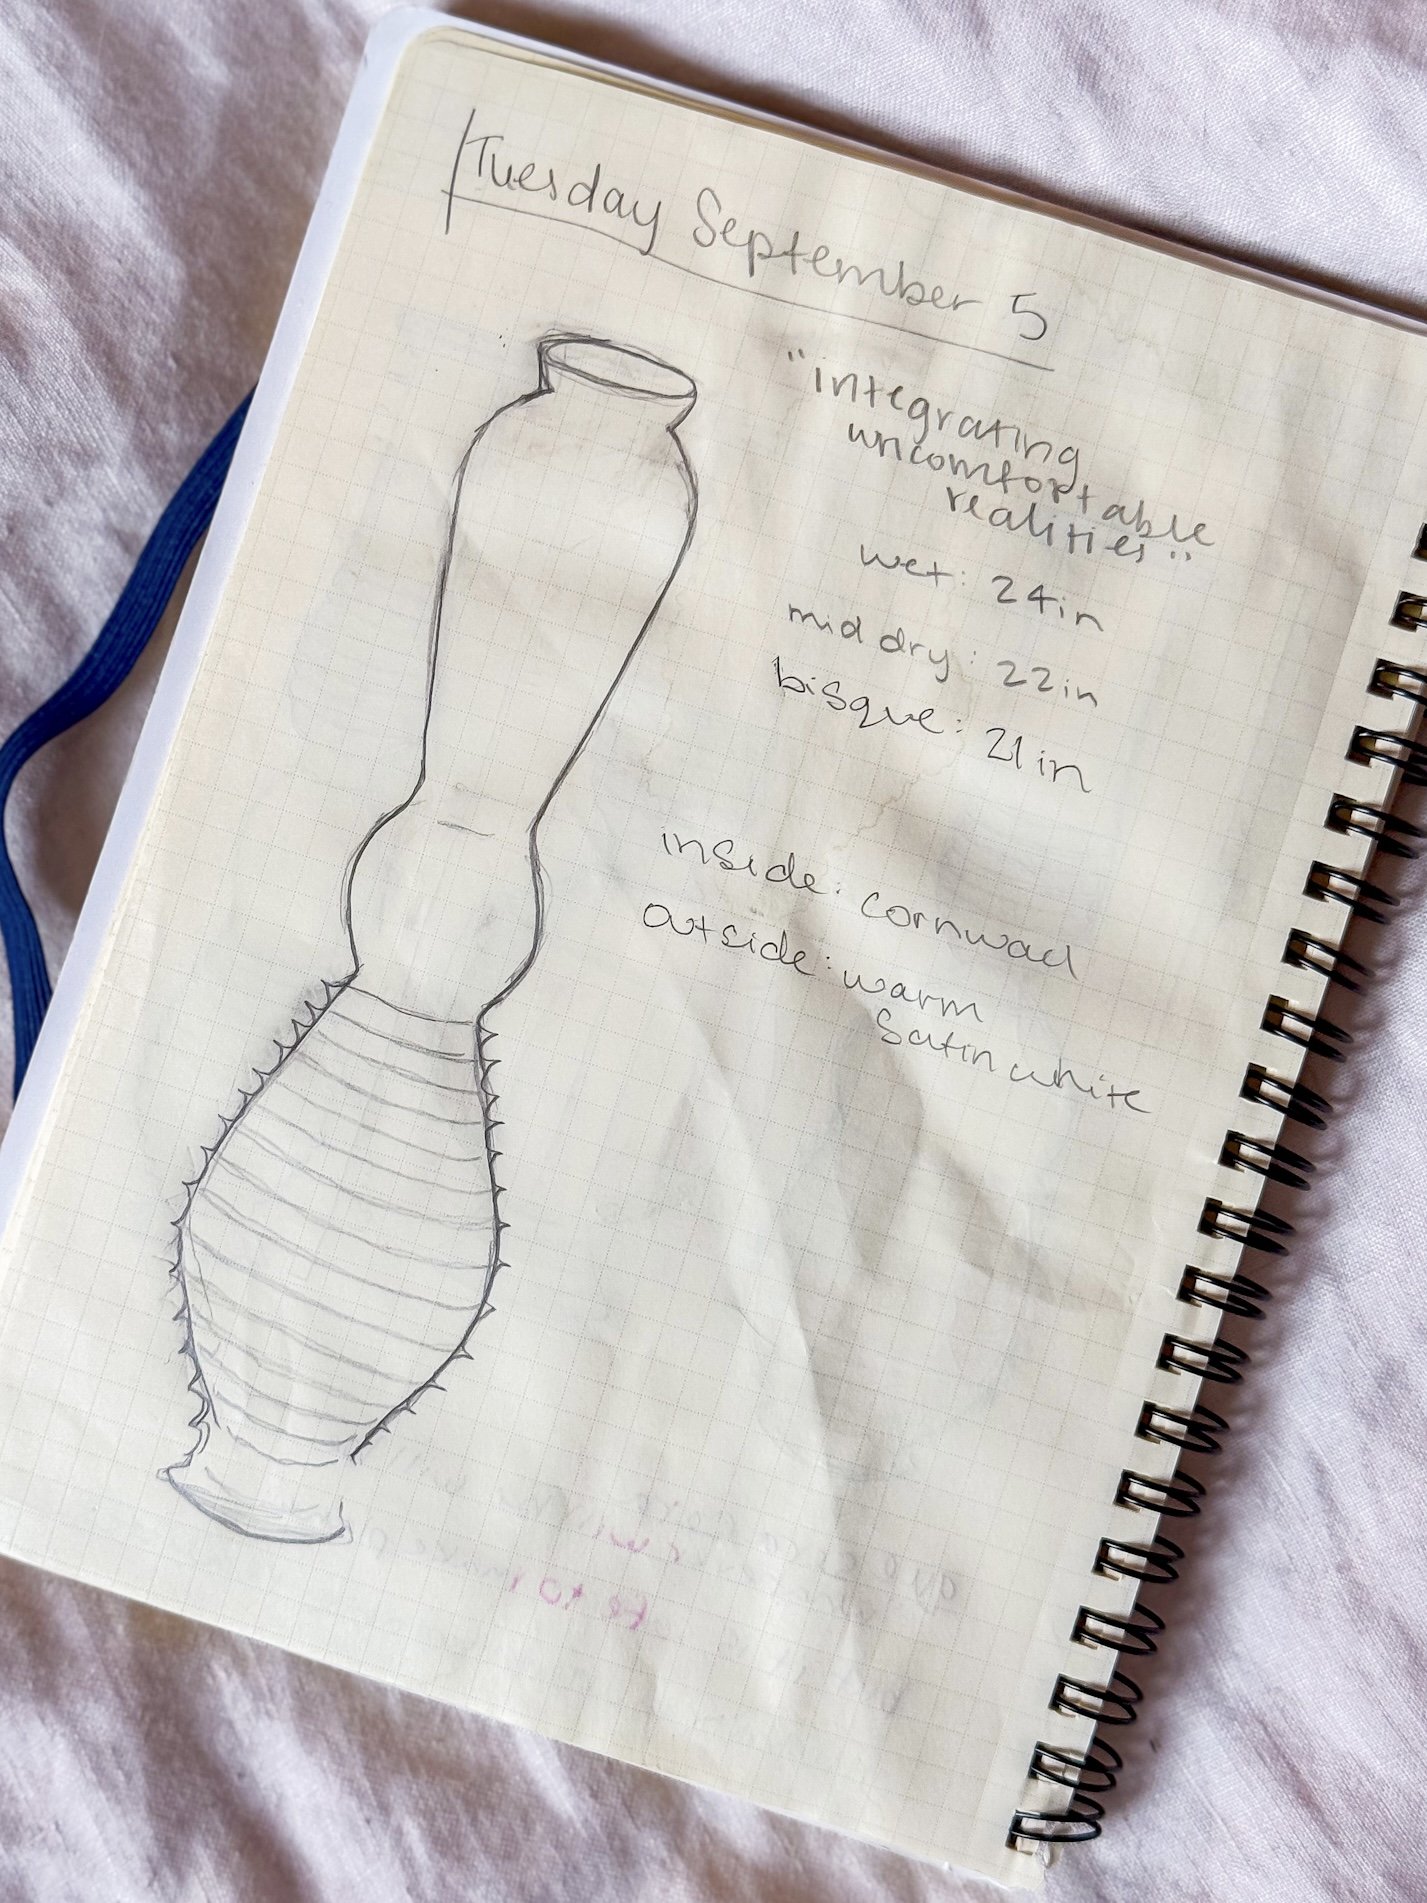 Tuesday September 5
"integrating
uncomfortable
realities"
wet: 24in
mid dry: 22in
bisque: 21in
inside: cornwad
outside: warm
satin white